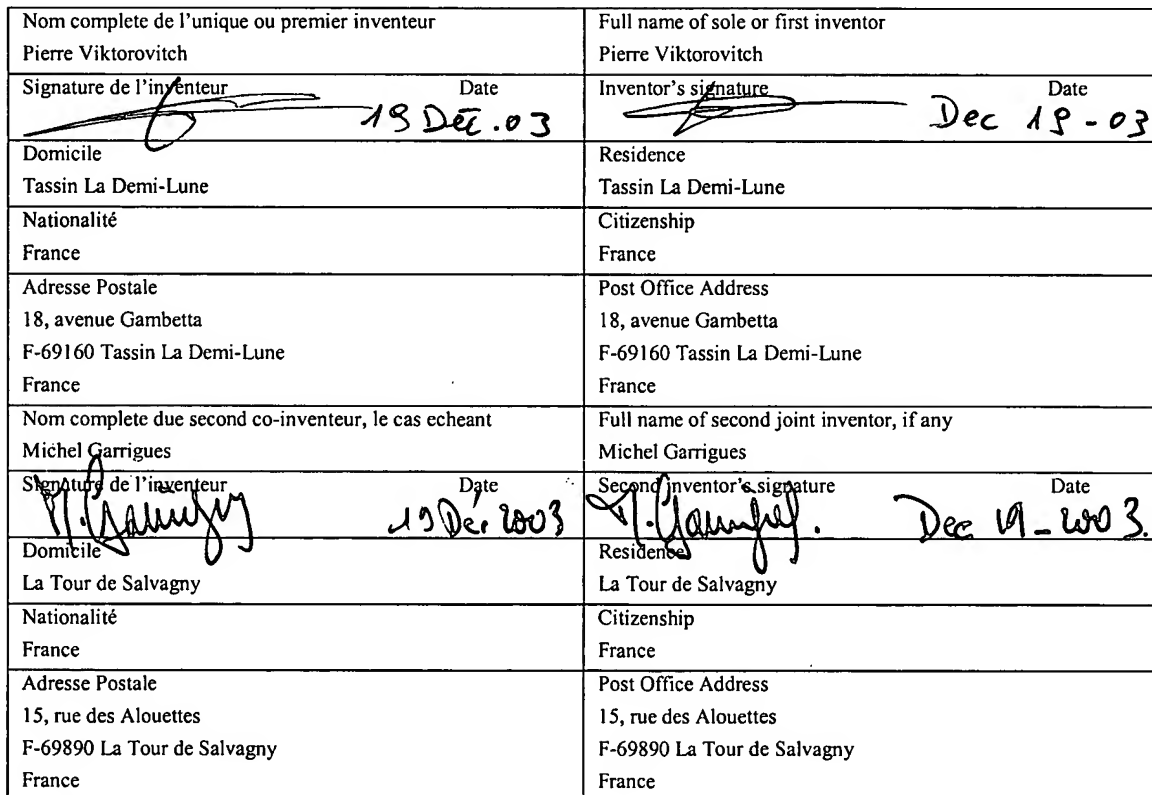 Nom complete de l'unique ou premier inventeur
Pierre Viktorovitch
Full name of sole or first inventor
Pierre Viktorovitch
Signature de l'inventeur Date
19 Déc. 03
Inventor's signature Date
Dec 19 - 03
Domicile
Tassin La Demi-Lune
Residence
Tassin La Demi-Lune
Nationalité
France
Citizenship
France
Adresse Postale
18, avenue Gambetta
F-69160 Tassin La Demi-Lune
France
Post Office Address
18, avenue Gambetta
F-69160 Tassin La Demi-Lune
France
Nom complete due second co-inventeur, le cas echeant
Michel Garrigues
Full name of second joint inventor, if any
Michel Garrigues
Signature de l'inventeur Date
M. Garrigues 19 Déc 2003
Second inventor's signature Date
M. Garrigues. Dec 19 - 2003.
Domicile
La Tour de Salvagny
Residence
La Tour de Salvagny
Nationalité
France
Citizenship
France
Adresse Postale
15, rue des Alouettes
F-69890 La Tour de Salvagny
France
Post Office Address
15, rue des Alouettes
F-69890 La Tour de Salvagny
France